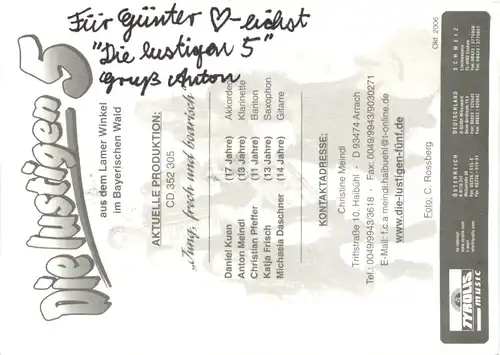 Für Günter ♡-lichst
"Die lustigen 5"
Gruß Anton
Die lustigen 5
aus dem Lamer Winkel
im Bayerischen Wald
AKTUELLE PRODUKTION:
CD 352 905
„Jung, frech und boarisch"
Daniel Kuen (17 Jahre) Akkordeon
Anton Meindl (13 Jahre) Klarinette
Christian Pfeffer (11 Jahre) Bariton
Katja Frisch (13 Jahre) Saxophon
Michaela Daschner (14 Jahre) Gitarre
KONTAKTADRESSE:
Christine Meindl
Trittstraße 10, Haibühl · D 93474 Arrach
Tel.: 0049/9943/3618 · Fax: 0049/9943/9030271
E-Mail: f.c.a.meindl.haibuehl@t-online.de
www.die-lustigen-fünf.de
Foto: C. Rossberg
Okt. 2006
TYROLIS
music
ÖSTERREICH
DEUTSCHLAND
SCHWEIZ